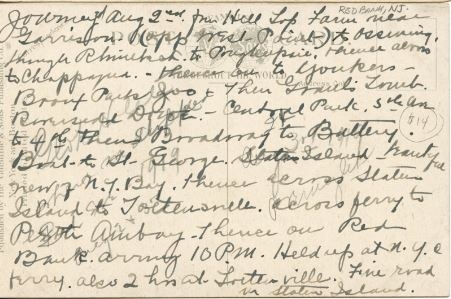 RED BANK, N.J.
Journey Aug 2nd from Hill Top Farm near
Garrison (opp West Point) to Ossining,
though Rhinebeck to Poughkepsie, thence across
to Chappaqua. - thence to Yonkers -
Bronx Park Zoo & then Grant's Tomb.
Riverside Drive - Central Park. 5th Av.
to 4th thence Broadway to Battery.
Boat to St. George. Staten Island
view of N.Y. Bay. Thence across Staten
Island to Tottensville. across ferry to
Perth Amboy - thence on Red
Bank. arriving 10 P.M. Held up at N.Y.C
ferry. also 2 hrs at Totten ville. Fine road
in Staten Island.
$14